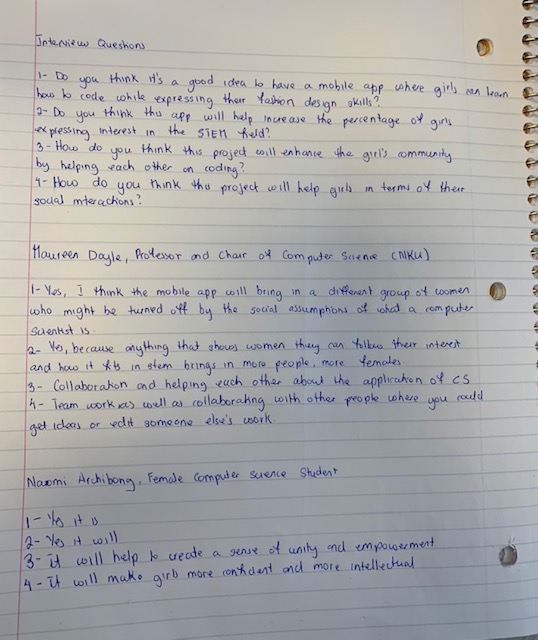 Interview Questions
1- Do you think it's a good idea to have a mobile app where girls can learn
how to code while expressing their fashion design skills?
2- Do you think this app will help increase the percentage of girls
expressing interest in the STEM field?
3- How do you think this project will enhance the girl's community
by helping each other on coding?
4- How do you think this project will help girls in terms of their
social interactions?
Maureen Doyle, Professor and Chair of Computer Science (NKU)
1- Yes, I think the mobile app will bring in a different group of women
who might be turned off by the social assumptions of what a computer
scientist is.
2- Yes, because anything that shows women they can follow their interest
and how it fits in stem brings in more people, more females
3- Collaboration and helping each other about the application of CS
4- Team work as well as collaborating with other people where you could
get ideas or edit someone else's work.
Naomi Archibong, Female Computer Science Student
1- Yes it is
2- Yes it will
3- it will help to create a sense of unity and empowerment
4- It will make girls more confident and more intellectual